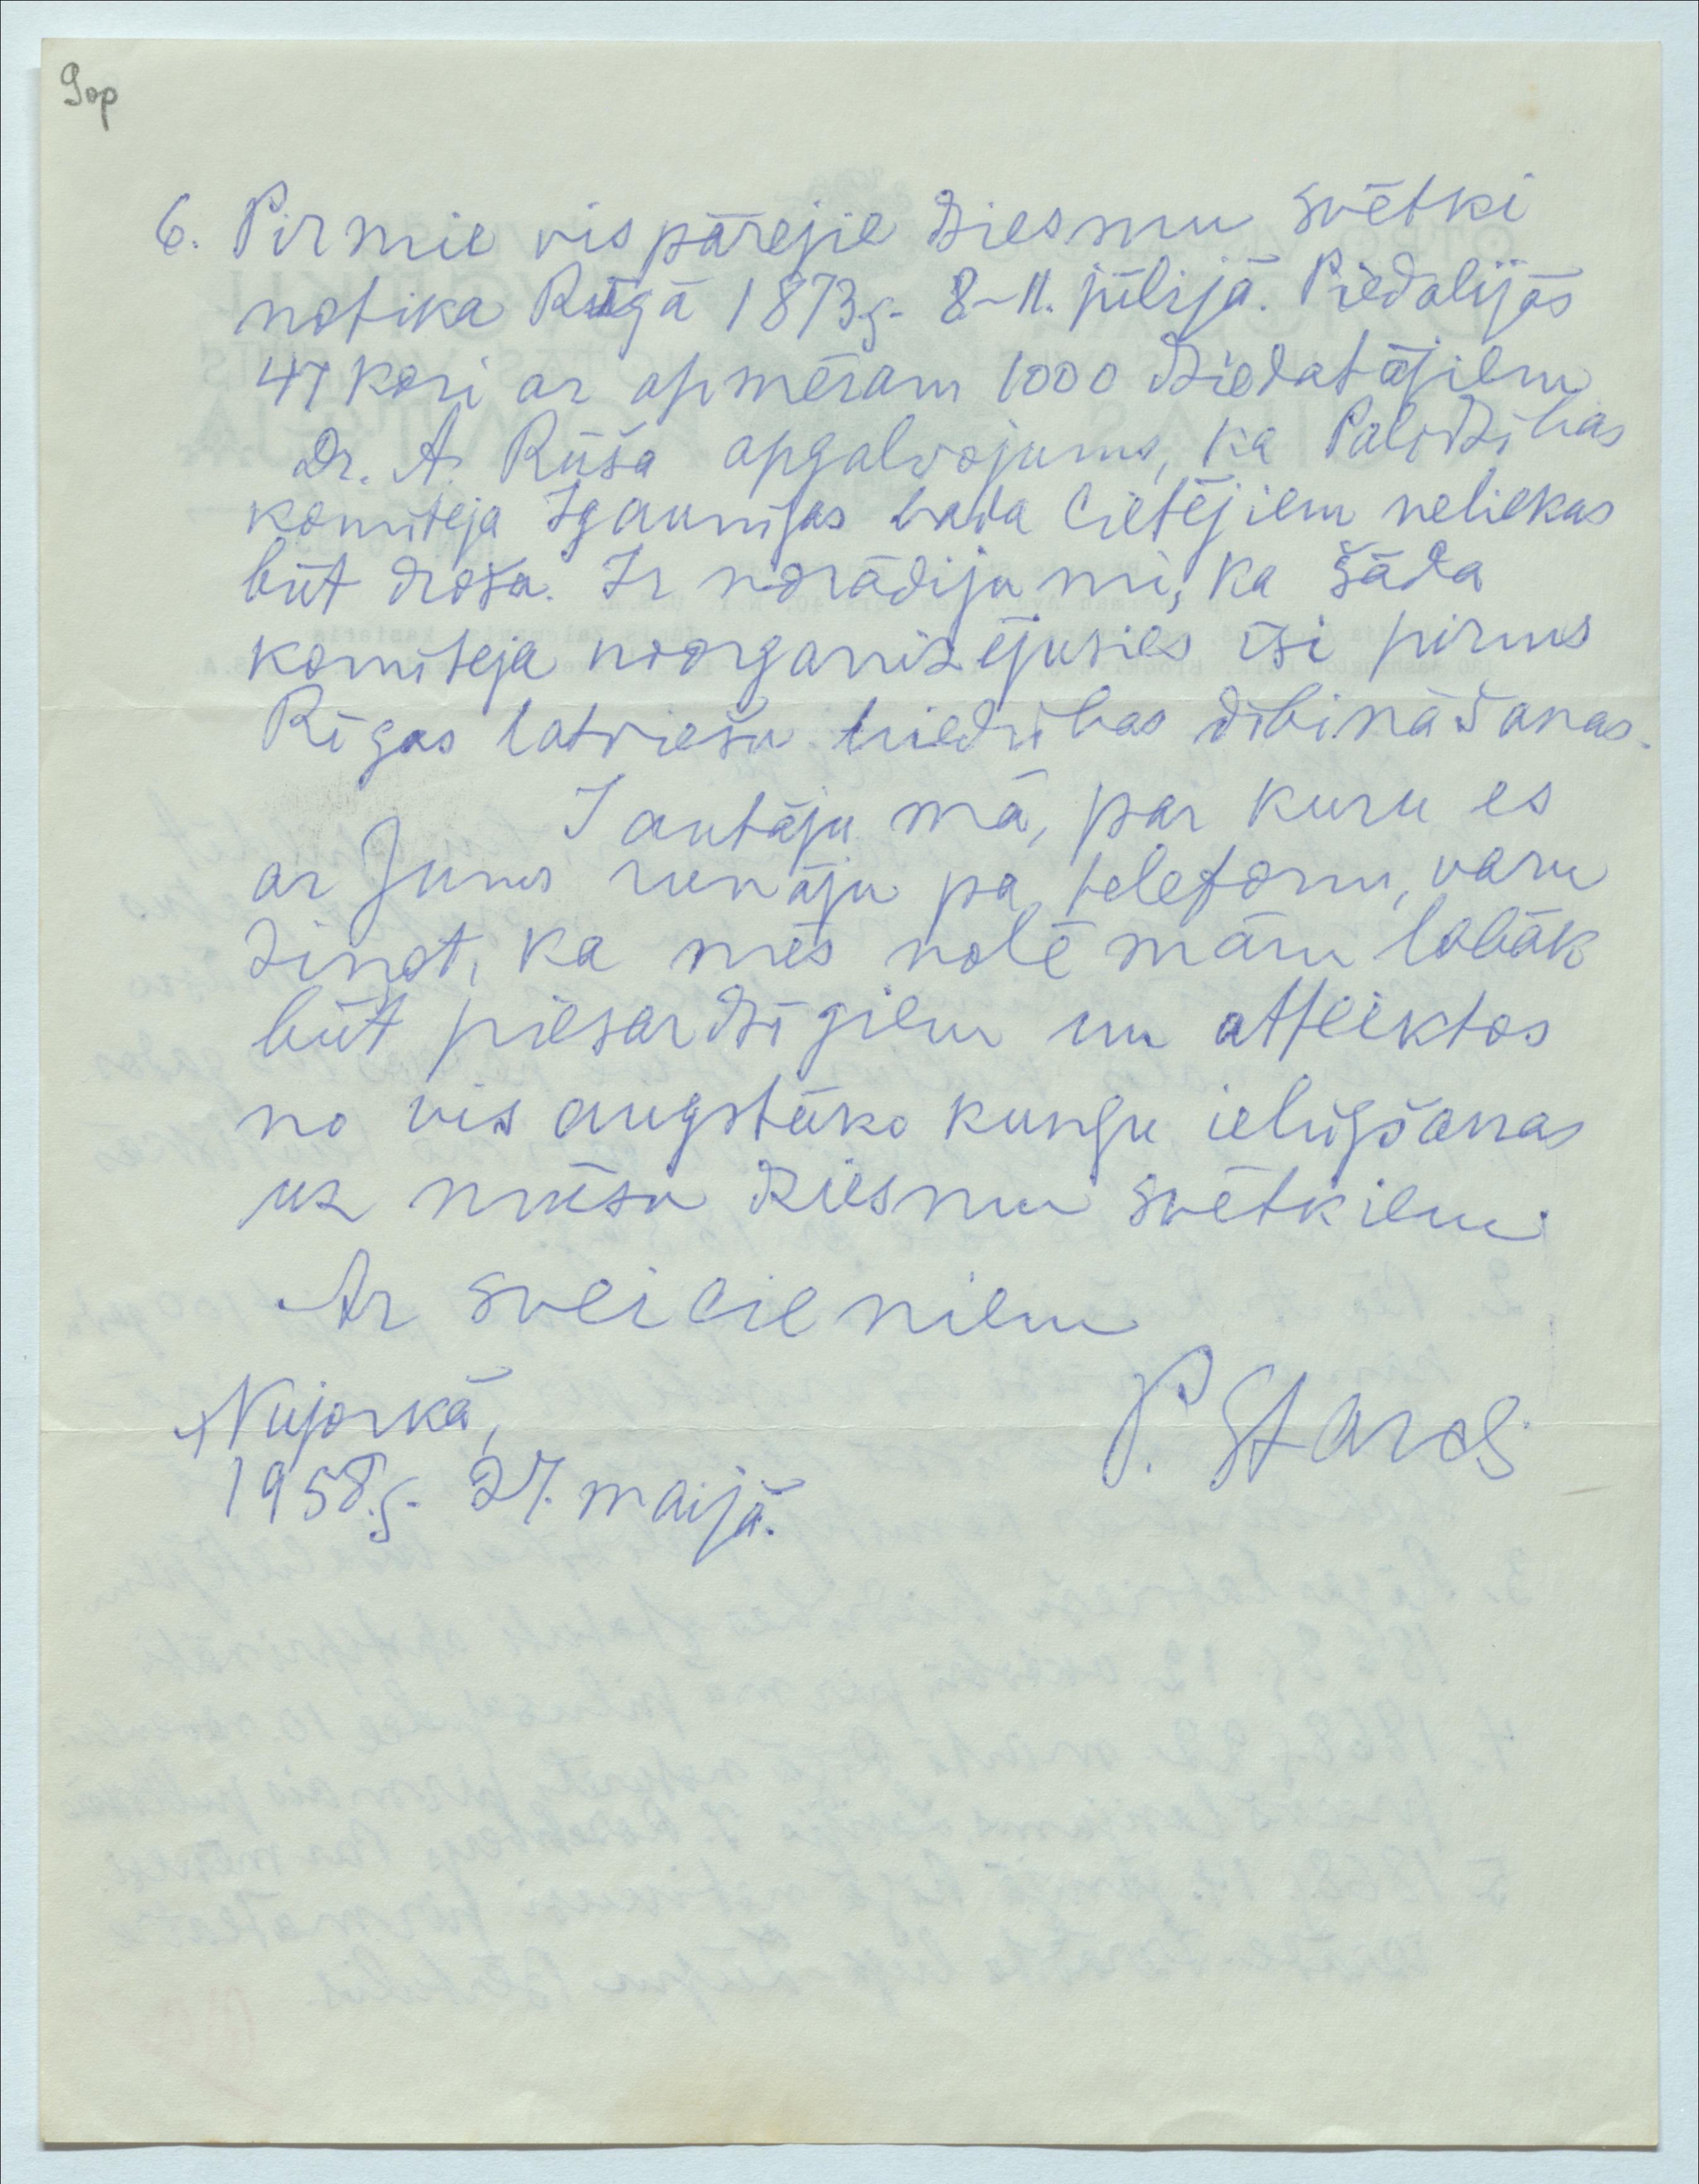 9op
6. Pirmie vispārejie dziesmu svētki
notika Rīgā 1873 g. 8–11. jūlijā. Piedalijās
47 kori ar apmēram 1000 dziedatājiem
Dr. A. Rūša apgalvojums, ka Palīdzības
komiteja Igaunijas bada cietējiem neliekas
būt droša. Ir norādijumi, ka šāda
komiteja noorganizējusies īsi pirms
Rīgas latviešu biedrības dibināšanas.
Jautājumā, par kuru es
ar Jums runāju pa telefonu, varu
ziņot, ka mēs nolēmām labāk
būt piesardzīgiem un atteiktos
no vis augstāko kungu ielūgšanas
uz mūsu dziesmu svētkiem
Ar sveicieniem
Ņujorkā,
P. Stards
1958.g. 27. maijā.